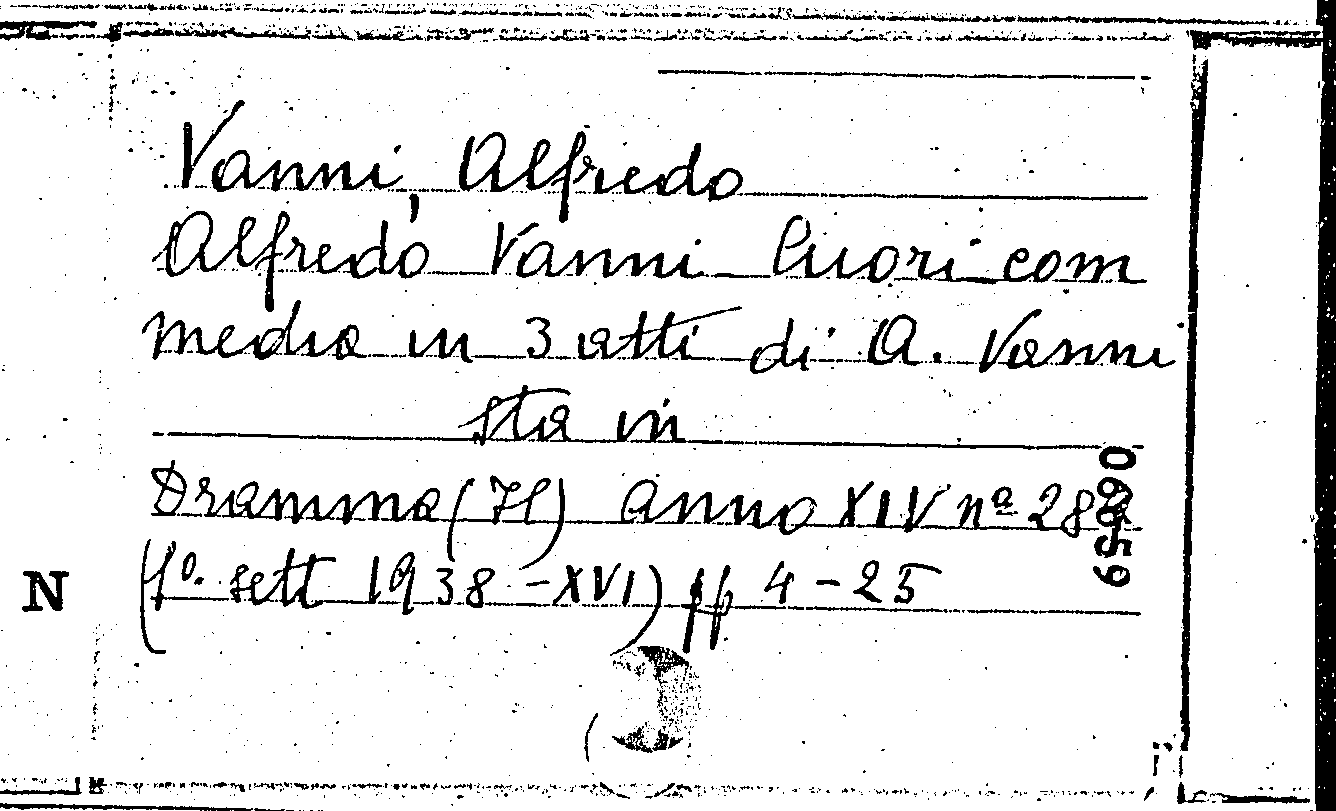 Vanni, Alfredo
Alfredo Vanni Cuori com
media in 3 atti di A. Vanni
sta in
Dramma (Il) anno XIV nº 282
(1º. sett 1938 - XVI) pp 4 - 25
N
65990